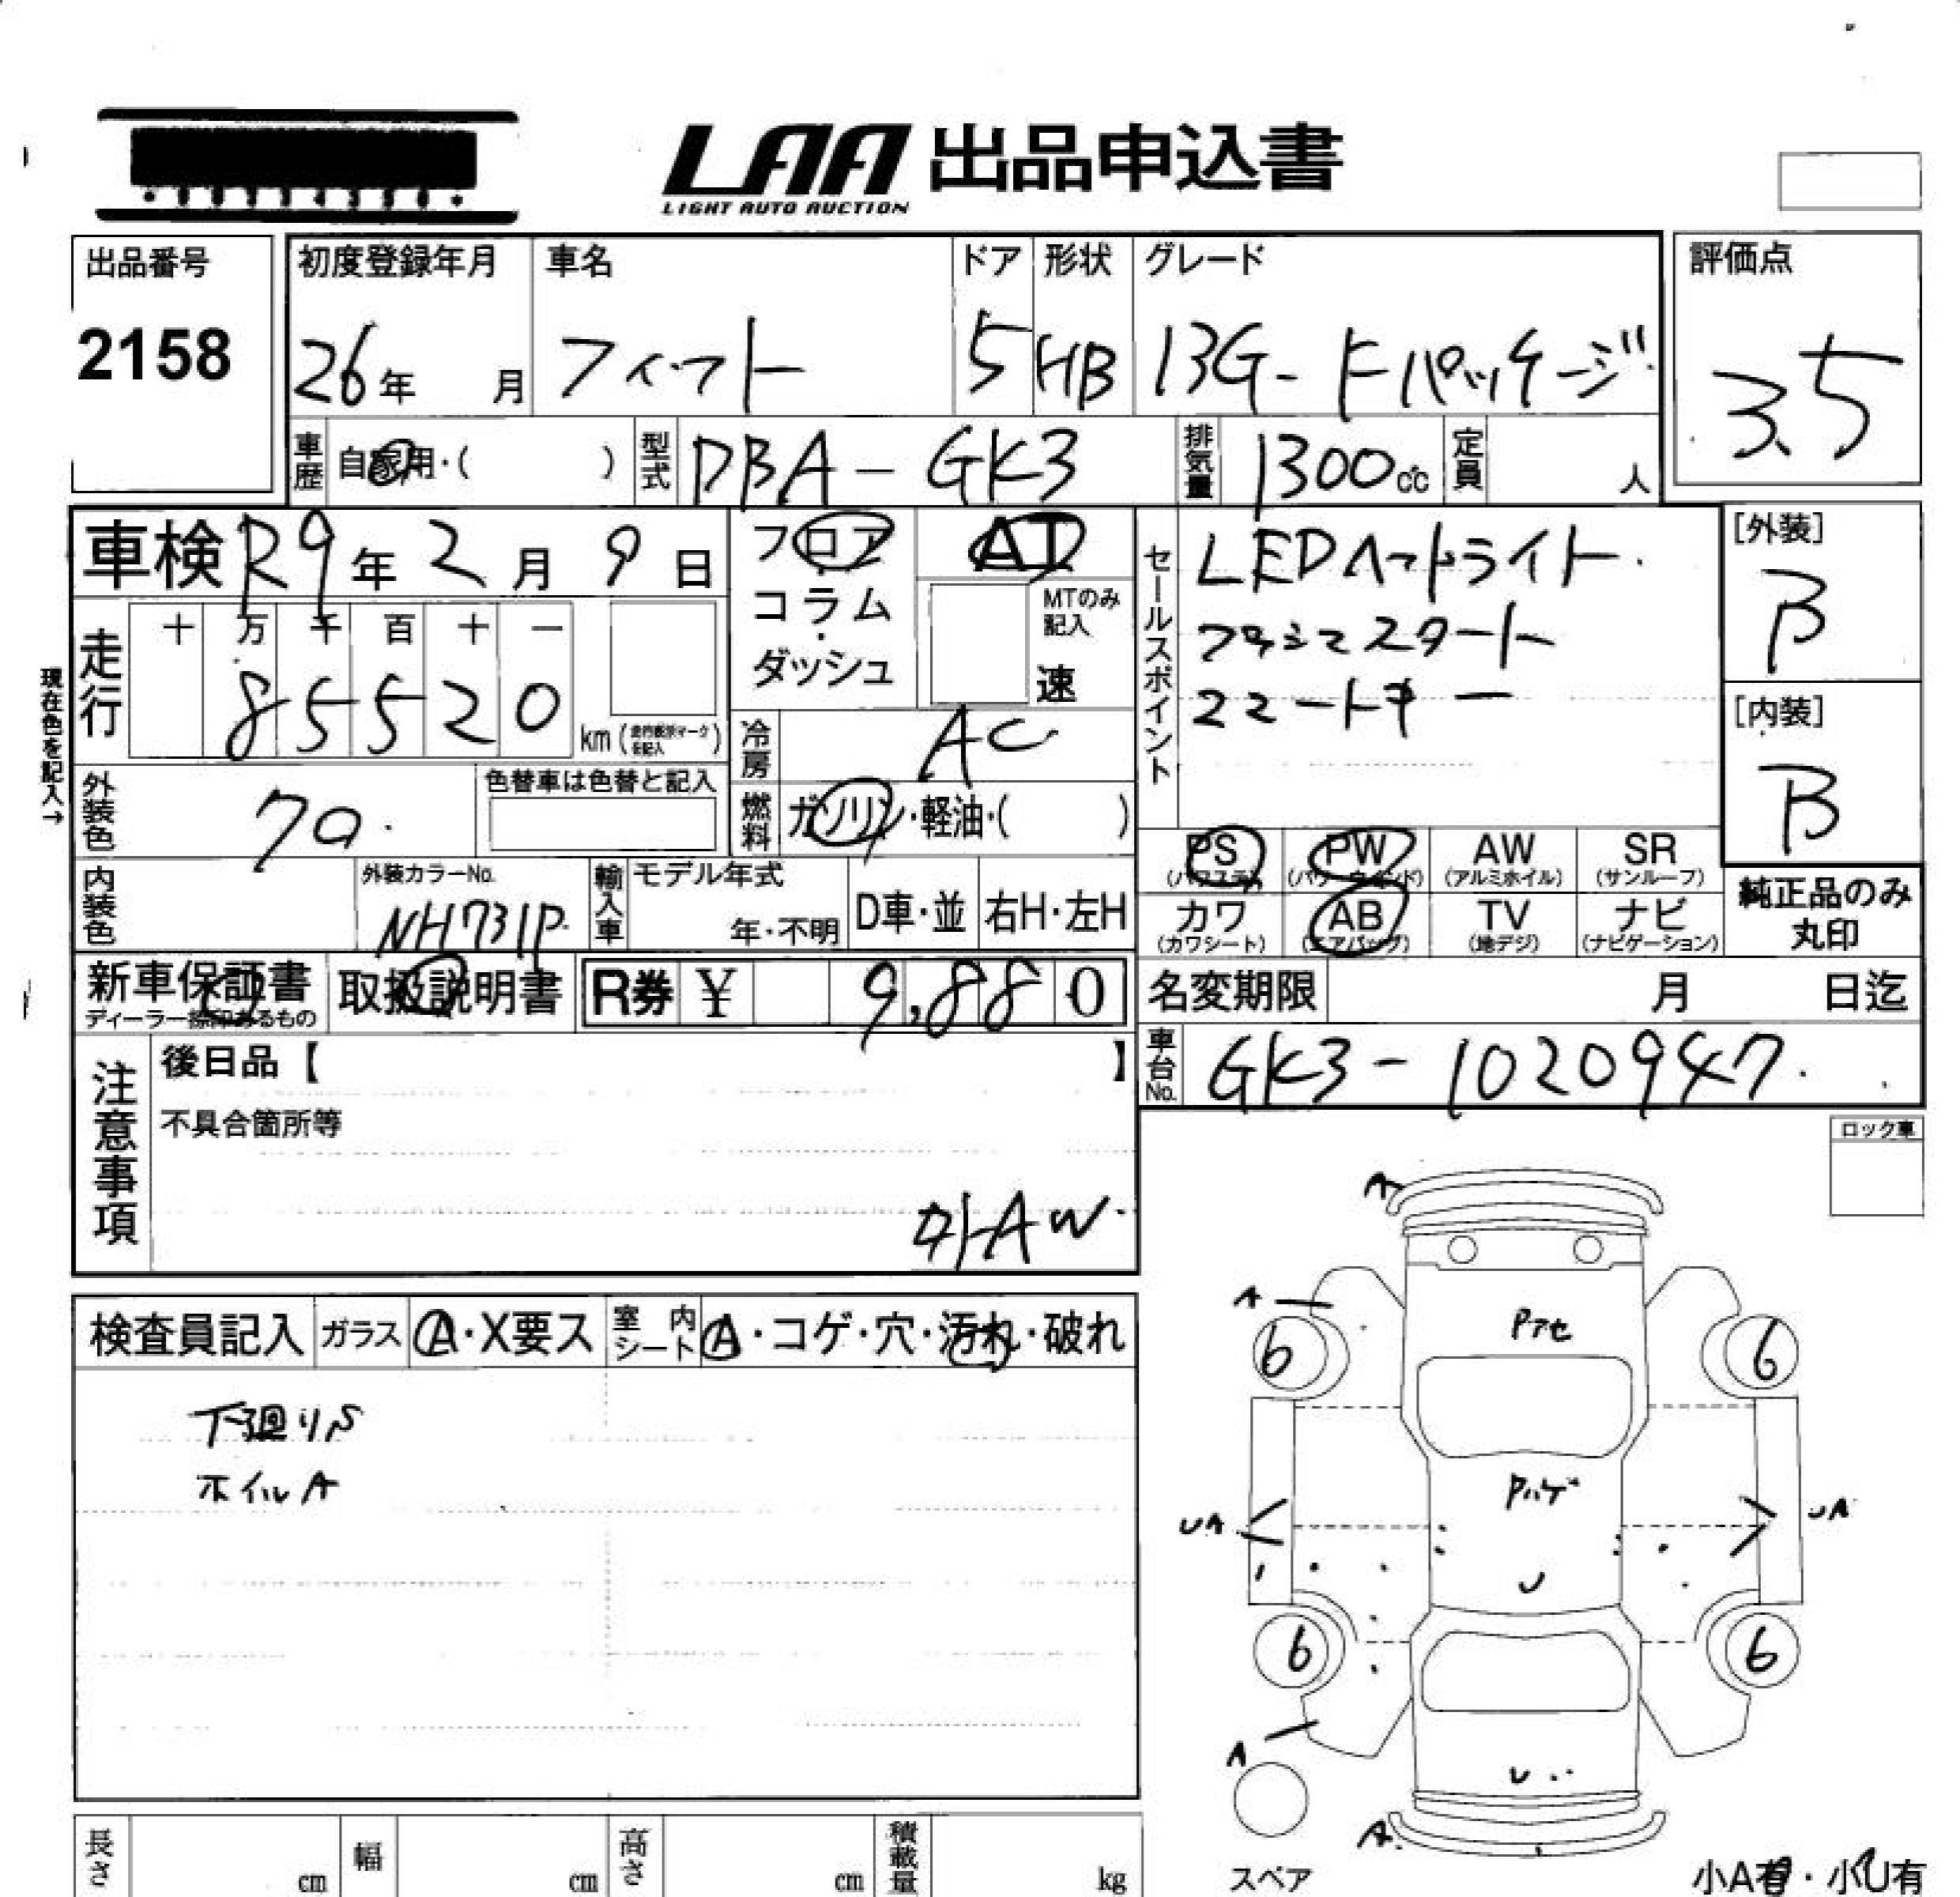 LAA 出品申込書
LIGHT AUTO AUCTION
出品番号
2158
初度登録年月
26年 月
車名
フィット
ドア
5
形状
HB
グレード
13G-Fパッケージ
評価点
3.5
車歴
自家用・( )
型式
DBA-GK3
排気量
1300cc
定員
人
車検 R9年 2月 9日
走行
十 万 千 百 十 一
8 5 5 2 0
km
現在色を記入→
フロア
コラム
ダッシュ
AT
MTのみ記入
速
冷房
AC
燃料
ガソリン・軽油・( )
セールスポイント
LEDヘッドライト
プッシュスタート
スマートキー
[外装]
B
[内装]
B
外装色
色替車は色替と記入
内装色
外装カラーNo.
NH731P
輸入車
モデル年式
年・不明
D車・並
右H・左H
PS
(パワステ)
PW
(パワーウインド)
AW
(アルミホイル)
SR
(サンルーフ)
カワ
(カワシート)
AB
(エアバッグ)
TV
(地デジ)
ナビ
(ナビゲーション)
純正品のみ
丸印
新車保証書
ディーラー捺印あるもの
取扱説明書
R券 ¥ 9,880
名変期限 月 日迄
車台No.
GK3-1020947
注意事項
後日品【 】
不具合箇所等
外AW
ロック車
検査員記入
ガラス
A・X要ス
室内シート
A・コゲ・穴・汚れ・破れ
下廻りS
ホイルA
A
A
Pアセ
6
6
Pハゲ
UA
UA
U
6
6
A
U
A
スペア
小A有・小U有
長さ
cm
幅
cm
高さ
cm
積載量
kg